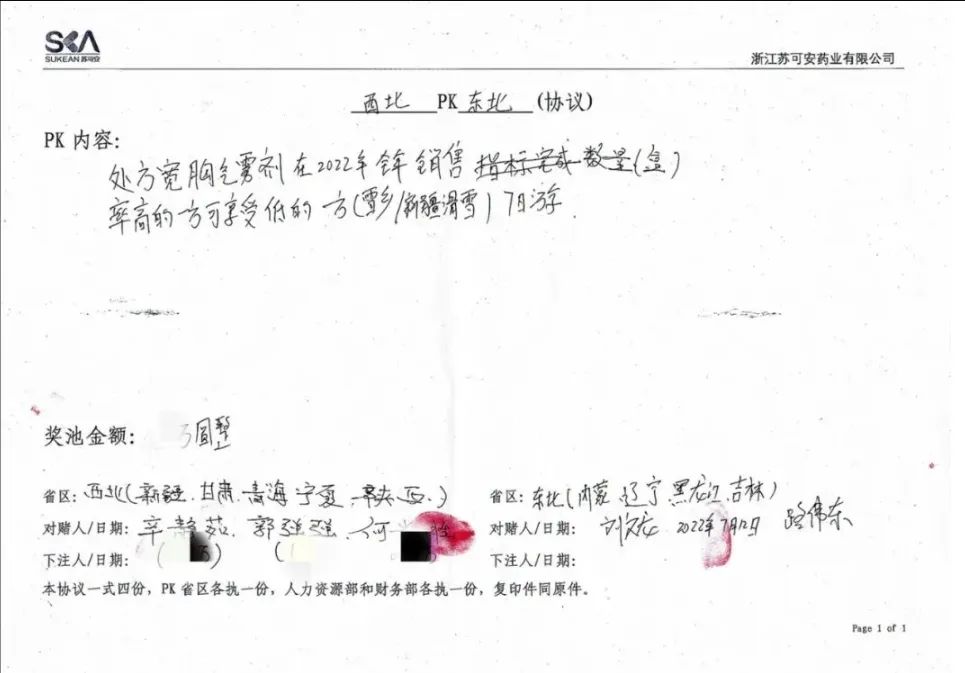 SKA
SUKEAN 苏可安
浙江苏可安药业有限公司
西北 PK 东北 (协议)
PK 内容:
处方宽胸气雾剂在2022年 全年 销售 指标完成 数量(盒)
率高的方可享受低的 方(雪乡/新疆滑雪) 7日游.
奖池金额: 圆整
省区: 西北(新疆.甘肃.青海.宁夏. 陕西.)
对赌人/日期: 辛静茹, 郭强强, 何
下注人/日期: ( 万) (
省区: 东北(内蒙.辽宁.黑龙江.吉林)
对赌人/日期: 2022年7月12日 路伟东
下注人/日期:
本协议一式四份, PK 省区各执一份, 人力资源部和财务部各执一份, 复印件同原件。
Page 1 of 1